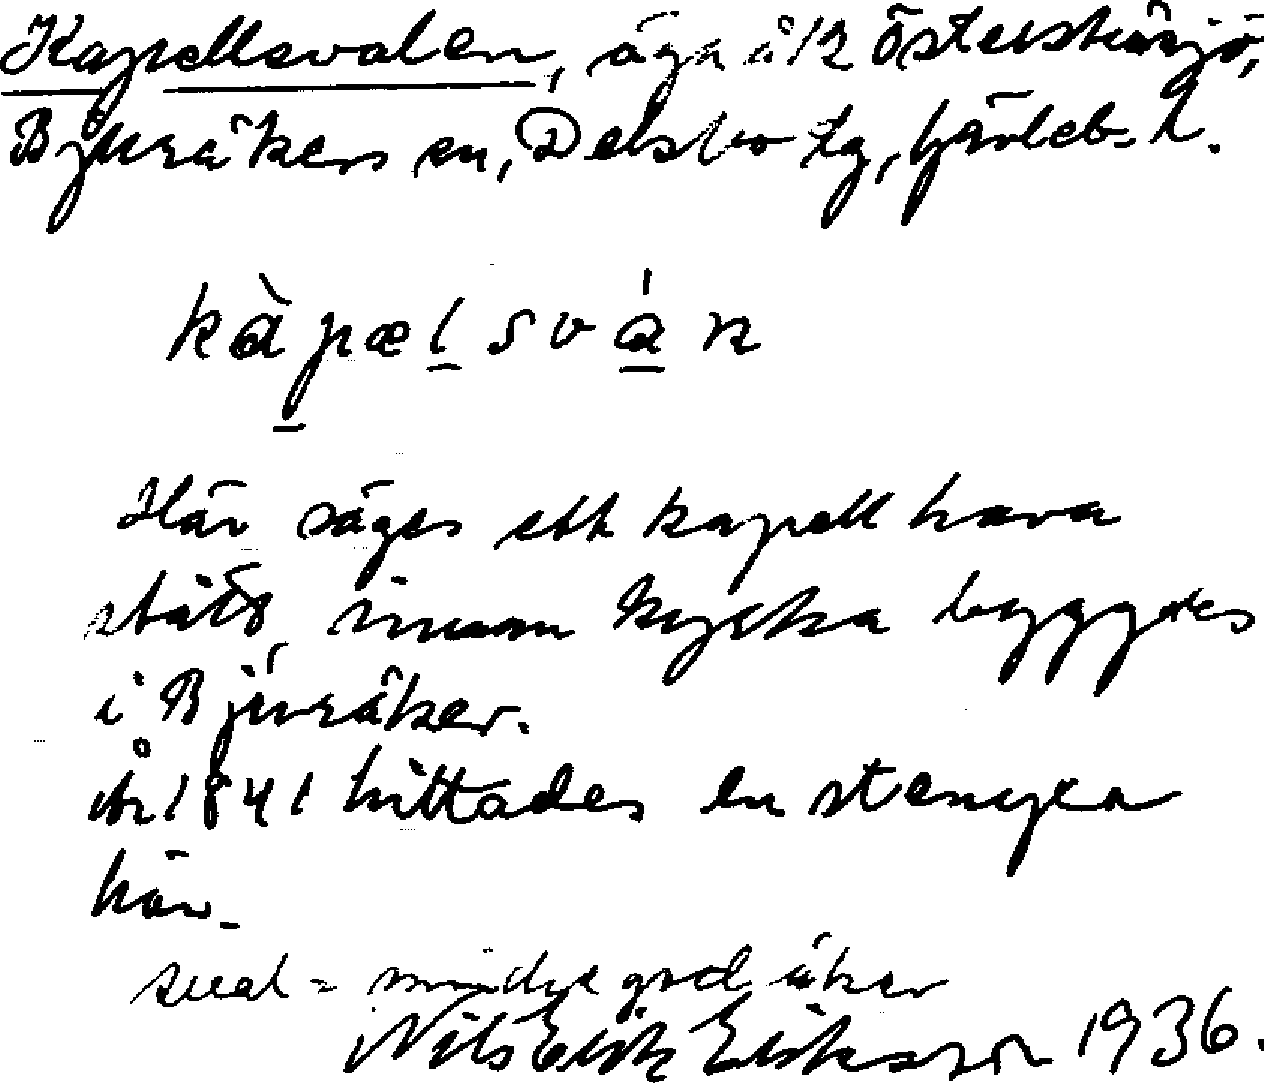 Kapellsvalen, äga å 1/2 Österstråsjö,
Bjuråkers sn, Delsbo tg, Gävleb. l.
kàpælsván
Här säges ett kapell hava
stått, innan kyrka byggdes
i Bjuråker.
År 1841 hittades en stenyxa
här.
sval = mindre god åker
Nils Erik Eriksson 1936.